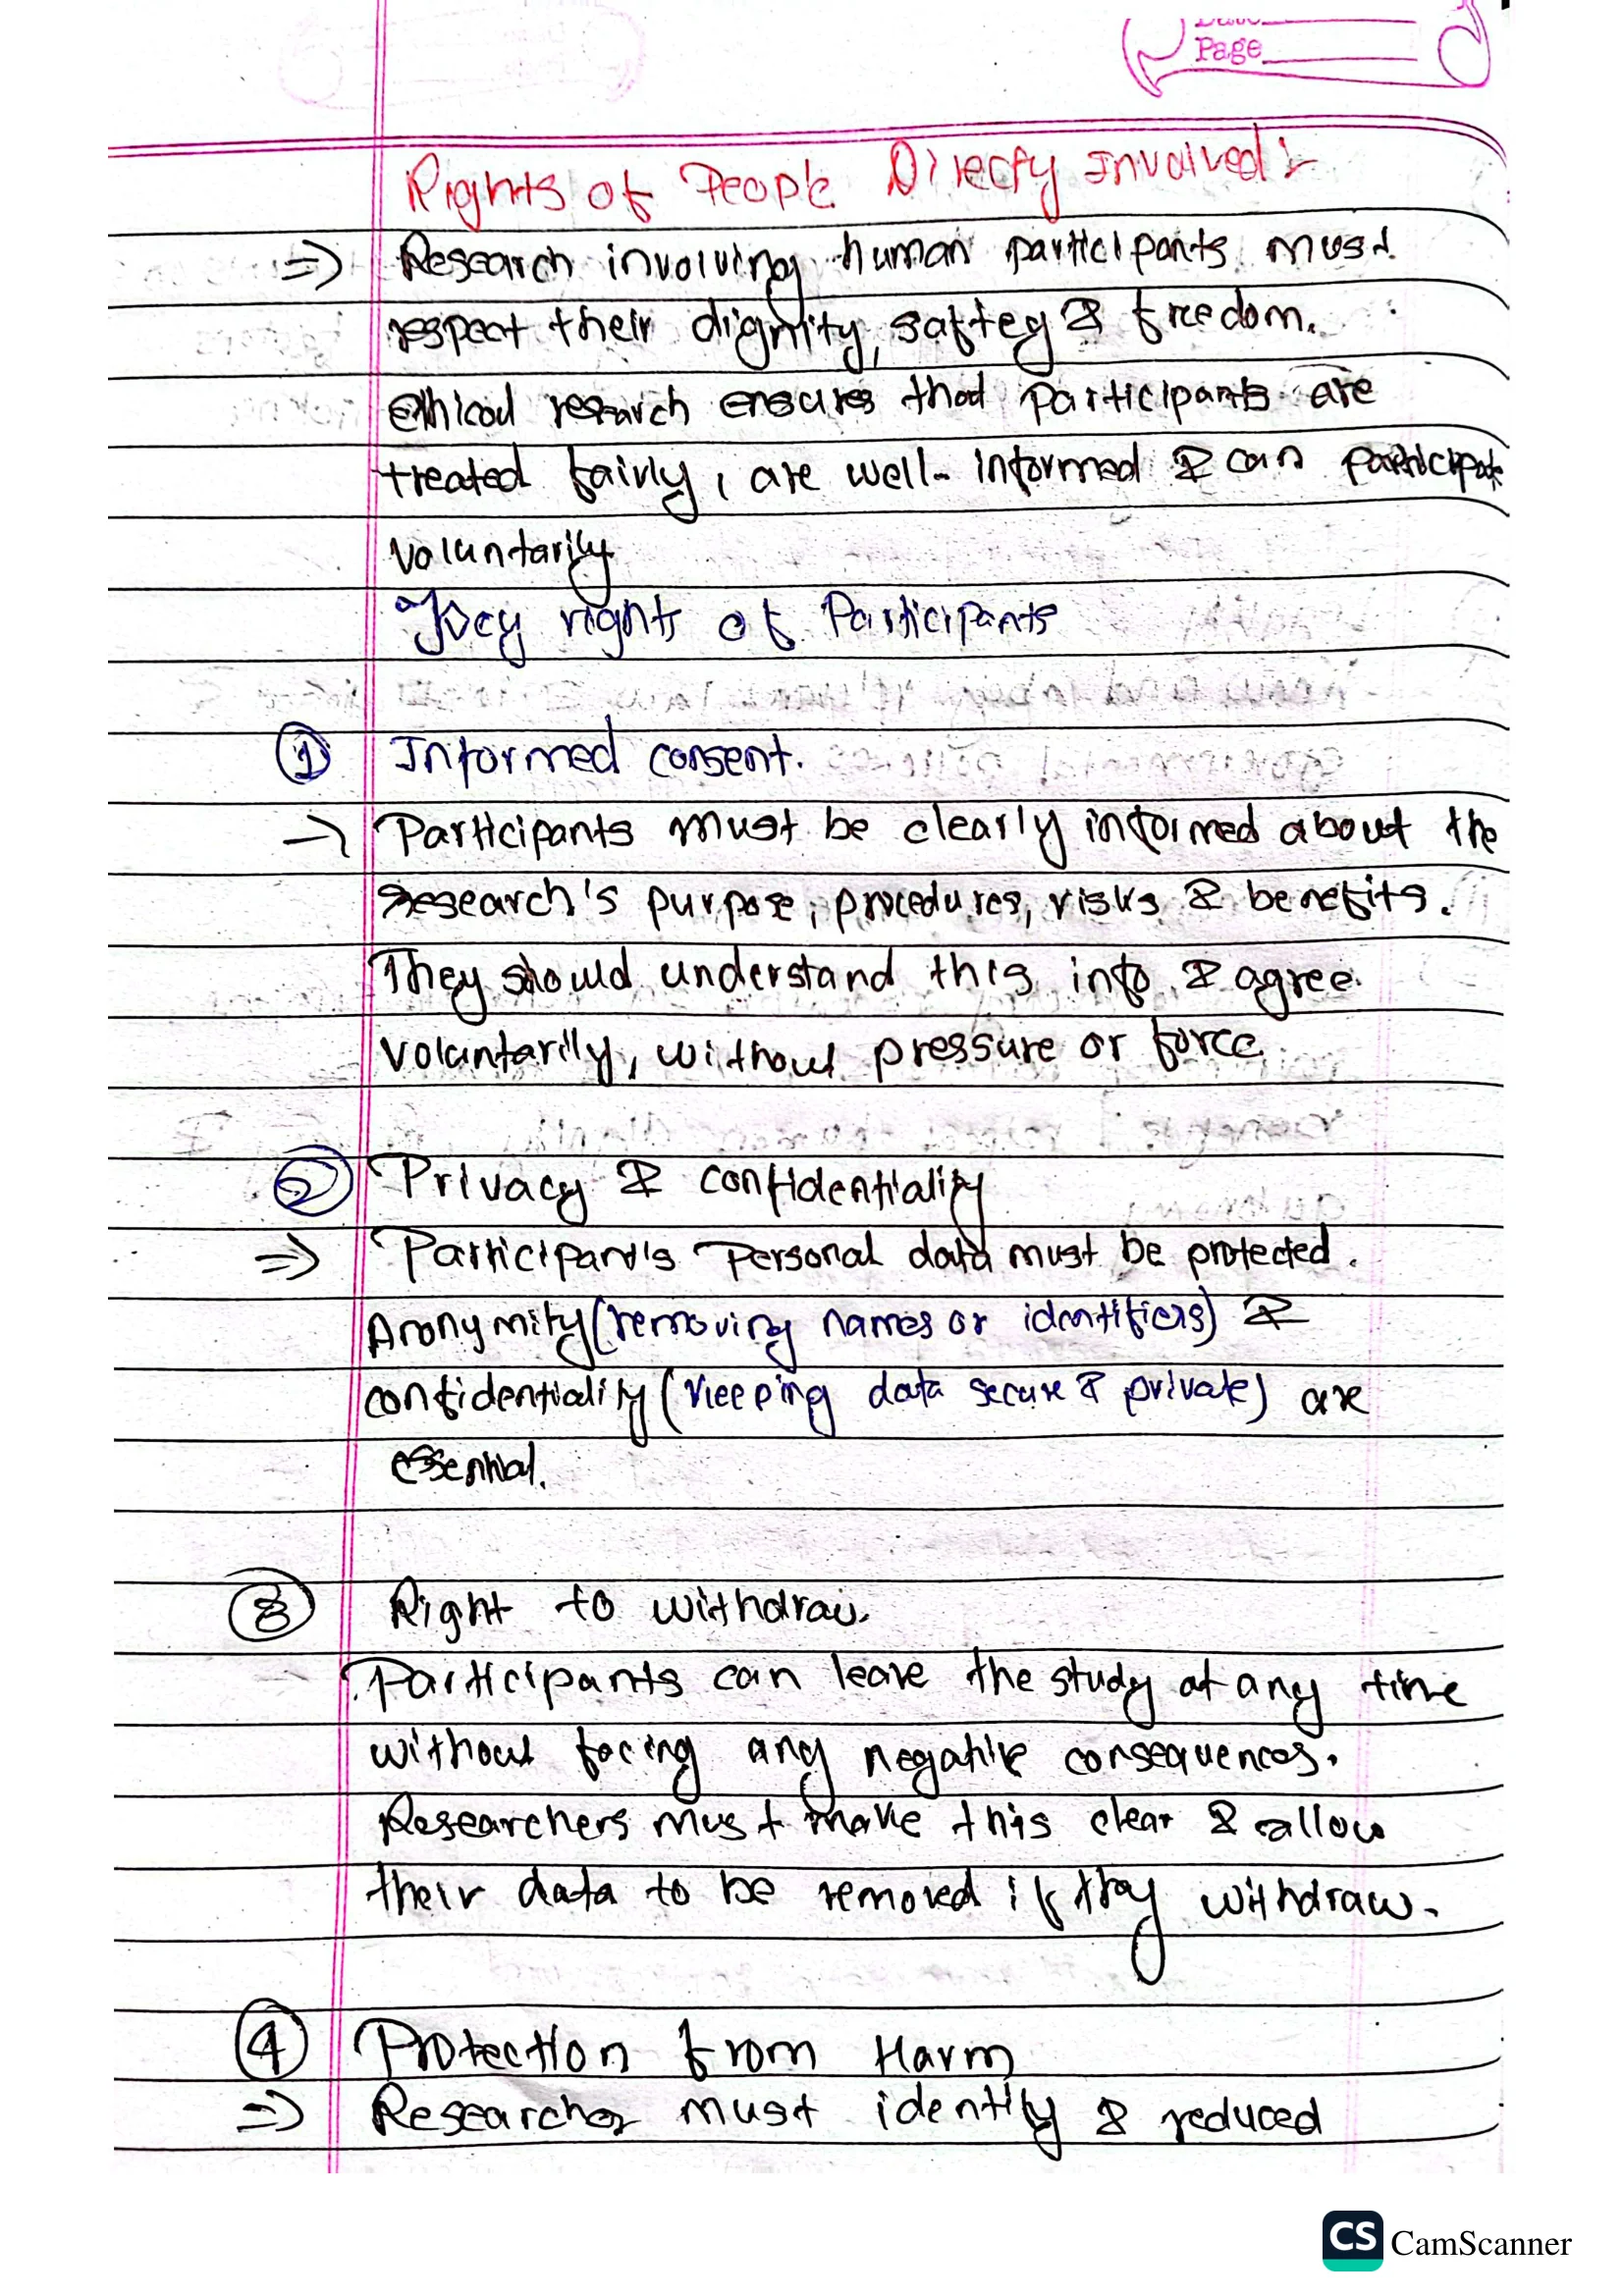 Page
Rights of People Directy Involved:-
=> Research involving human participants must
respect their dignity, saftey & freedom.
ethical research ensures that participants are
treated fairly, are well-informed & can participate
voluntarily
Key rights of Participants
① Informed consent.
→ Participants must be clearly informed about the
research's purpose, procedures, risks & benefits.
They should understand this info & agree
voluntarily, without pressure or force
② Privacy & confidentiality
=> Participant's Personal data must be protected.
Anonymity (removing names or identifiers) &
confidentiality (keeping data secure & private) are
essential.
③ Right to withdraw.
Participants can leave the study at any time
without facing any negative consequences.
Researchers must make this clear & allow
their data to be removed if they withdraw.
④ Protection from Harm
=> Researcher must identify & reduced
CS CamScanner